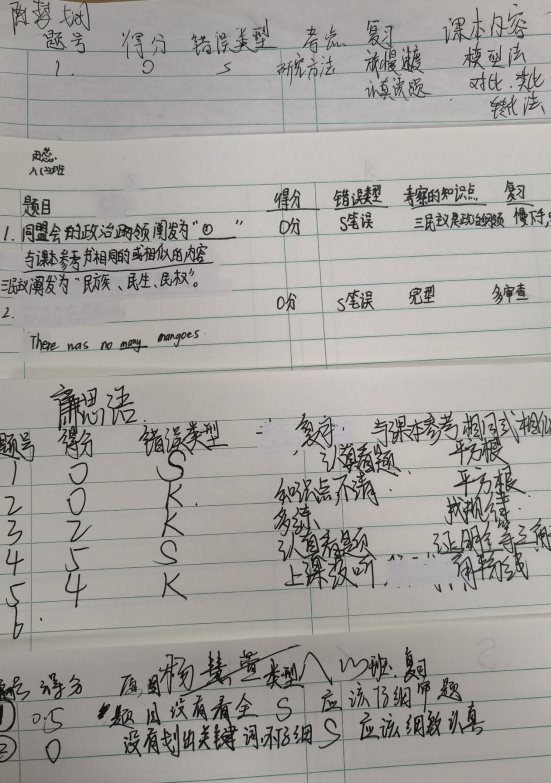 题号 得分 错误类型 考点 复习 课本内容
1. 0 S 研究方法 读慢速度 模型法
认真读题 对比、类比
转化法
题目 得分 错误类型 考察的知识点 复习
1. 同盟会的政治纲领阐发为“① ” 0分 S笔误 三民主义是政治纲领 慢下手,
与课本参考书相同的或相似的内容
三民政阐发为“民族、民生、民权”。
2. 0分 S笔误 完型 多审查
There was no many mangoes.
廉思语
题号 得分 错误类型 复习 与课本参考相同或相似
1 0 S 认真看题 平方根
2 0 K. 知识点不清 平方根
3 2 K 多练 找规律
4 5 S 认真看题 证明等三角
5 4 K 上课效听 角平分线
6.
杨慧 八 班
得分 原因 类型 复习
① 0.5 题目没有看全 S 应该仔细审题
② 0 没有划出关键词,不仔细 S 应该细致认真